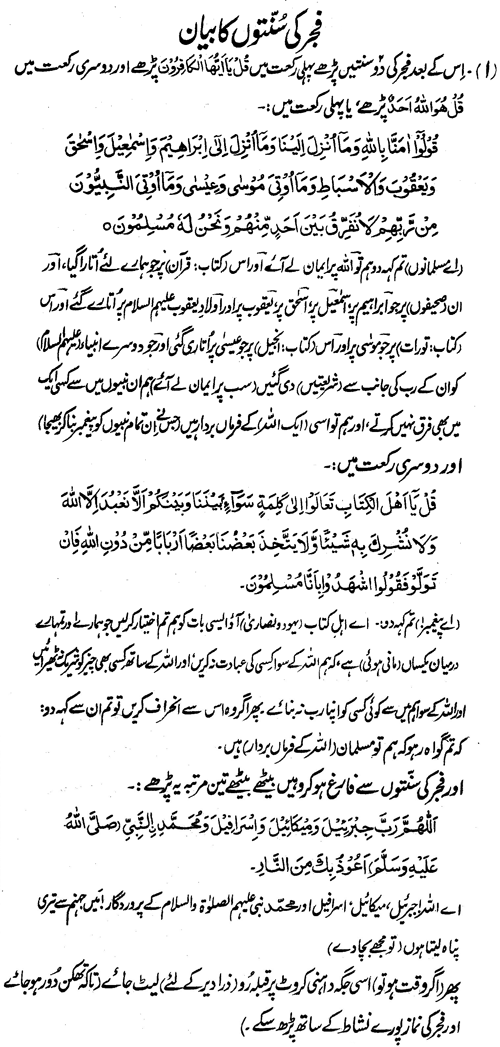 فجر کی سُنّتوں کا بیان
(۱)۔ اِس کے بعد فجر کی دو سنتیں پڑھے پہلی رکعت میں قُلْ يَا أَيُّهَا الْكَافِرُوْنَ پڑھے اور دوسری رکعت میں
قُلْ هُوَ اللّٰهُ اَحَدٌ پڑھے، یا پہلی رکعت میں:۔
قُوْلُوْا اٰمَنَّا بِاللّٰهِ وَمَا اُنْزِلَ اِلَيْنَا وَمَا اُنْزِلَ اِلٰى اِبْرَاهِيْمَ وَاِسْمٰعِيْلَ وَاِسْحٰقَ
وَيَعْقُوْبَ وَالْاَسْبَاطِ وَمَا اُوْتِيَ مُوْسٰى وَعِيْسٰى وَمَا اُوْتِيَ النَّبِيُّوْنَ
مِنْ رَّبِّهِمْ لَا نُفَرِّقُ بَيْنَ اَحَدٍ مِّنْهُمْ وَنَحْنُ لَهٗ مُسْلِمُوْنَ ○
(اے مسلمانوں) تم کہہ دو ہم تو اللہ پر ایمان لے آئے اور اس (کتاب: قرآن) پر جو ہمارے لئے اُتارا گیا، اور
ان (صحیفوں) پر جو ابراہیم پر، اسمٰعیل پر، اسحٰق پر، یعقوب پر اور اولادِ یعقوب علیہم السلام پر اُتارے گئے اور اس
(کتاب: تورات) پر جو موسٰی پر اور اُس (کتاب: انجیل) پر جو عیسٰی پر اُتاری گئی اور جو دوسرے انبیاء (علیہم السلام)
کو ان کے رب کی جانب سے (شریعتیں) دی گئیں (سب پر ایمان لے آئے) ہم ان نبیوں میں سے کسی ایک
میں بھی فرق نہیں کرتے، اور ہم تو اسی (ایک اللہ) کے فرماں بردار ہیں (جس نے ان تمام نبیوں کو پیغمبر بنا کر بھیجا)
اور دوسری رکعت میں:۔
قُلْ يَا اَهْلَ الْكِتَابِ تَعَالَوْا اِلٰى كَلِمَةٍ سَوَآءٍ بَيْنَنَا وَبَيْنَكُمْ اَلَّا نَعْبُدَ اِلَّا اللّٰهَ
وَلَا نُشْرِكَ بِهٖ شَيْئًا وَّلَا يَتَّخِذَ بَعْضُنَا بَعْضًا اَرْبَابًا مِّنْ دُوْنِ اللّٰهِ فَاِنْ
تَوَلَّوْ فَقُوْلُوا اشْهَدُوْا بِاَنَّا مُسْلِمُوْنَ۔
(اے پیغمبر!) تم کہہ دو۔ اے اہلِ کتاب (یہود و نصارٰی) آؤ ایسی بات کو ہم تم اختیار کر لیں جو ہمارے اور تمہارے
درمیان یکساں (مانی ہوئی) ہے، کہ ہم اللہ کے سوا کسی کی عبادت نہ کریں اور اللہ کے ساتھ کسی بھی چیز کو شریک نہ ٹھہرائیں
اور اللہ کے سوا ہم میں سے کوئی کسی کو اپنا رب نہ بنائے پھر اگر وہ اس سے انحراف کریں تو تم ان سے کہہ دو:
کہ تم گواہ رہو کہ ہم تو مسلمان (اللہ کے فرماں بردار) ہیں۔
اور فجر کی سنّتوں سے فارغ ہو کر وہیں بیٹھے بیٹھے تین مرتبہ یہ پڑھے:۔
اَللّٰهُمَّ رَبَّ جِبْرَئِيْلَ وَمِيْكَائِيْلَ وَاِسْرَافِيْلَ وَمُحَمَّدٍ بِالنَّبِيِّ (صَلَّى اللّٰهُ
عَلَيْهِ وَسَلَّمَ) اَعُوْذُ بِكَ مِنَ النَّارِ۔
اے اللہ! جبرئیل، میکائیل، اسرافیل اور محمد نبی علیہم الصلوٰۃ والسلام کے پروردگار! میں جہنم سے تیری
پناہ لیتا ہوں (تو مجھے بچا دے)
پھر (اگر وقت ہو تو) اسی جگہ داہنی کروٹ پر قبلہ رُو (ذرا دیر کے لئے) لیٹ جائے (تاکہ تھکن دُور ہو جائے
اور فجر کی نماز پورے نشاط کے ساتھ پڑھ سکے۔)